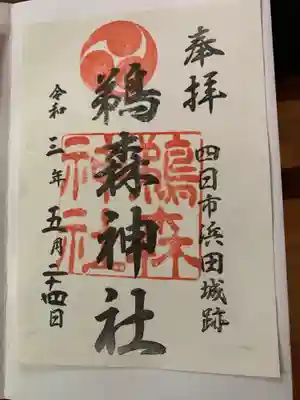 奉拝
四日市浜田城跡
鵜森神社
鵜森神社
令和三年五月二十四日